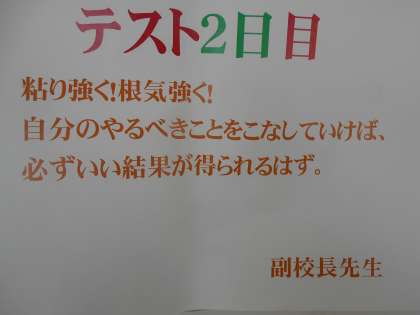 テスト2日目
粘り強く!根気強く!
自分のやるべきことをこなしていけば、
必ずいい結果が得られるはず。
副校長先生